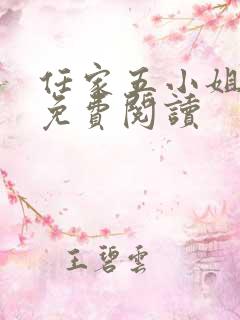 任家五小姐
免費閱讀
王碧雲